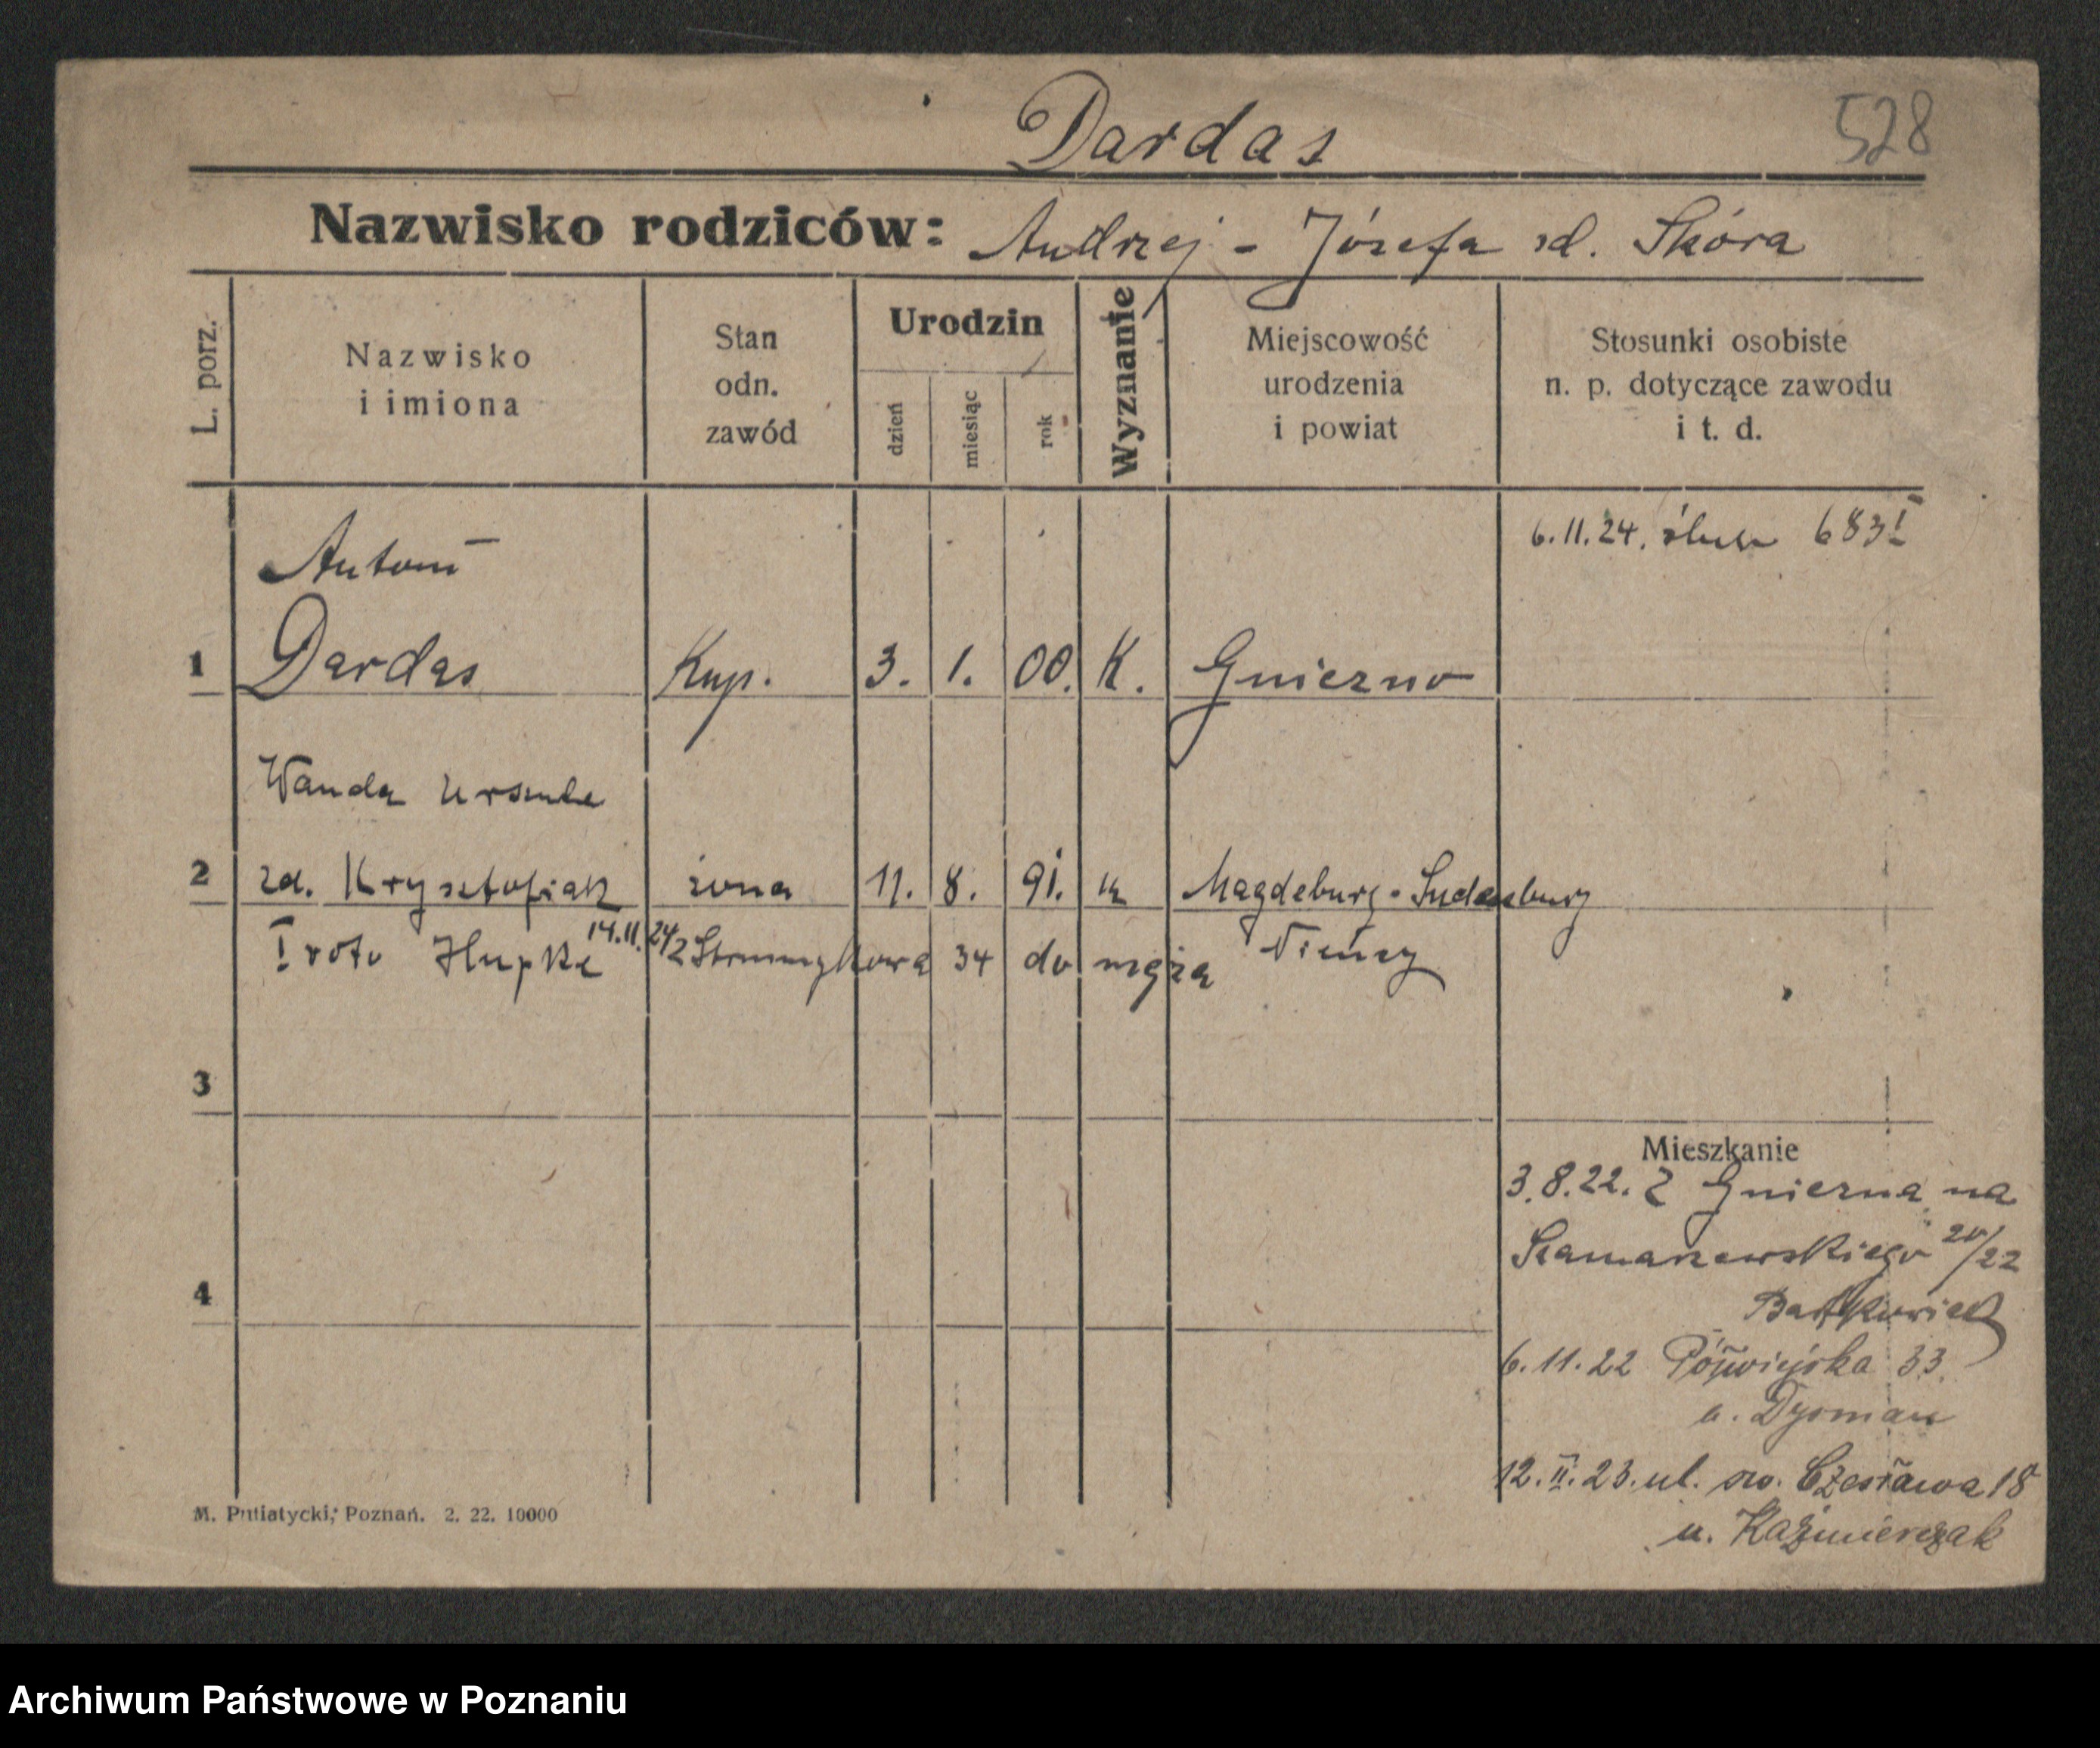 Dardas
528
Nazwisko rodziców: Andrzej - Józefa zd. Skóra
L. porz.
Nazwisko
i imiona
Stan
odn.
zawód
Urodzin
dzień
miesiąc
rok
Wyznanie
Miejscowość
urodzenia
i powiat
Stosunki osobiste
n. p. dotyczące zawodu
i t. d.
6.11.24. ślub 683 I
Antoni
1 Dardas Kup. 3. 1. 00. K. Gniezno
Wanda Urszula
2 zd. Krysztofiak żona 11. 8. 91. k Magdeburg - Sudenburg
I voto Hupke 14.11.24 z Strumykowa 34 do męża Niemcy
3
4
Mieszkanie
3.8.22. z Gniezna na
Szamarzewskiego 20/22
Bartkowiak
6.11.22 Półwiejska 33.
u. Dysman
12.II.23. ul. św. Czesława 18
u. Kaźmierczak
M. Putiatycki, Poznań. 2. 22. 10000
Archiwum Państwowe w Poznaniu